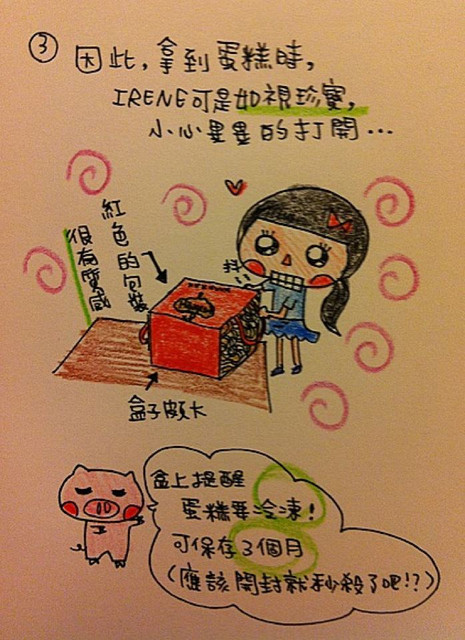 ③ 因此,拿到蛋糕時,
IRENE可是如視珍寶,
小心翼翼的打開…
紅色的包裝
很有質感
抖
盒子頗大
盒上提醒
蛋糕要冷凍!
可保存3個月
(應該開封就秒殺了吧!?)